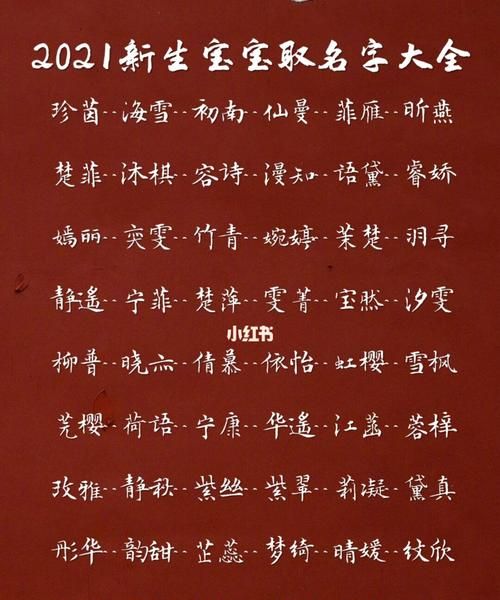 2021新生宝宝取名字大全
珍茵--海雪--初南--仙曼--菲雁--昕燕
楚菲--沐棋--容诗--漫知--语黛--睿娇
嫣丽--奕雯--竹青--婉婷--茉楚--羽寻
静遥--宁菲--楚萍--雯菁--宝然--汐雯
小红书
柳普--晓亦--倩慕--依怡--虹樱--雪枫
芫樱--荷语--宁康--华遥--江菡--蓉梓
玫雅--静秋--紫丝--紫翠--莉凝--黛真
彤华--韵甜--芷蕊--梦绮--晴媛--纹欣